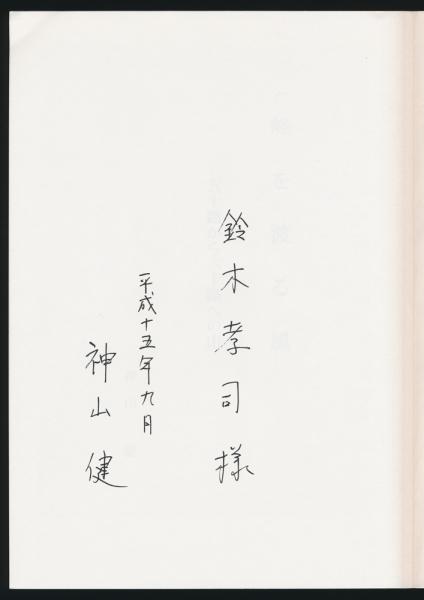 鈴木孝司様
平成十五年九月
神山健